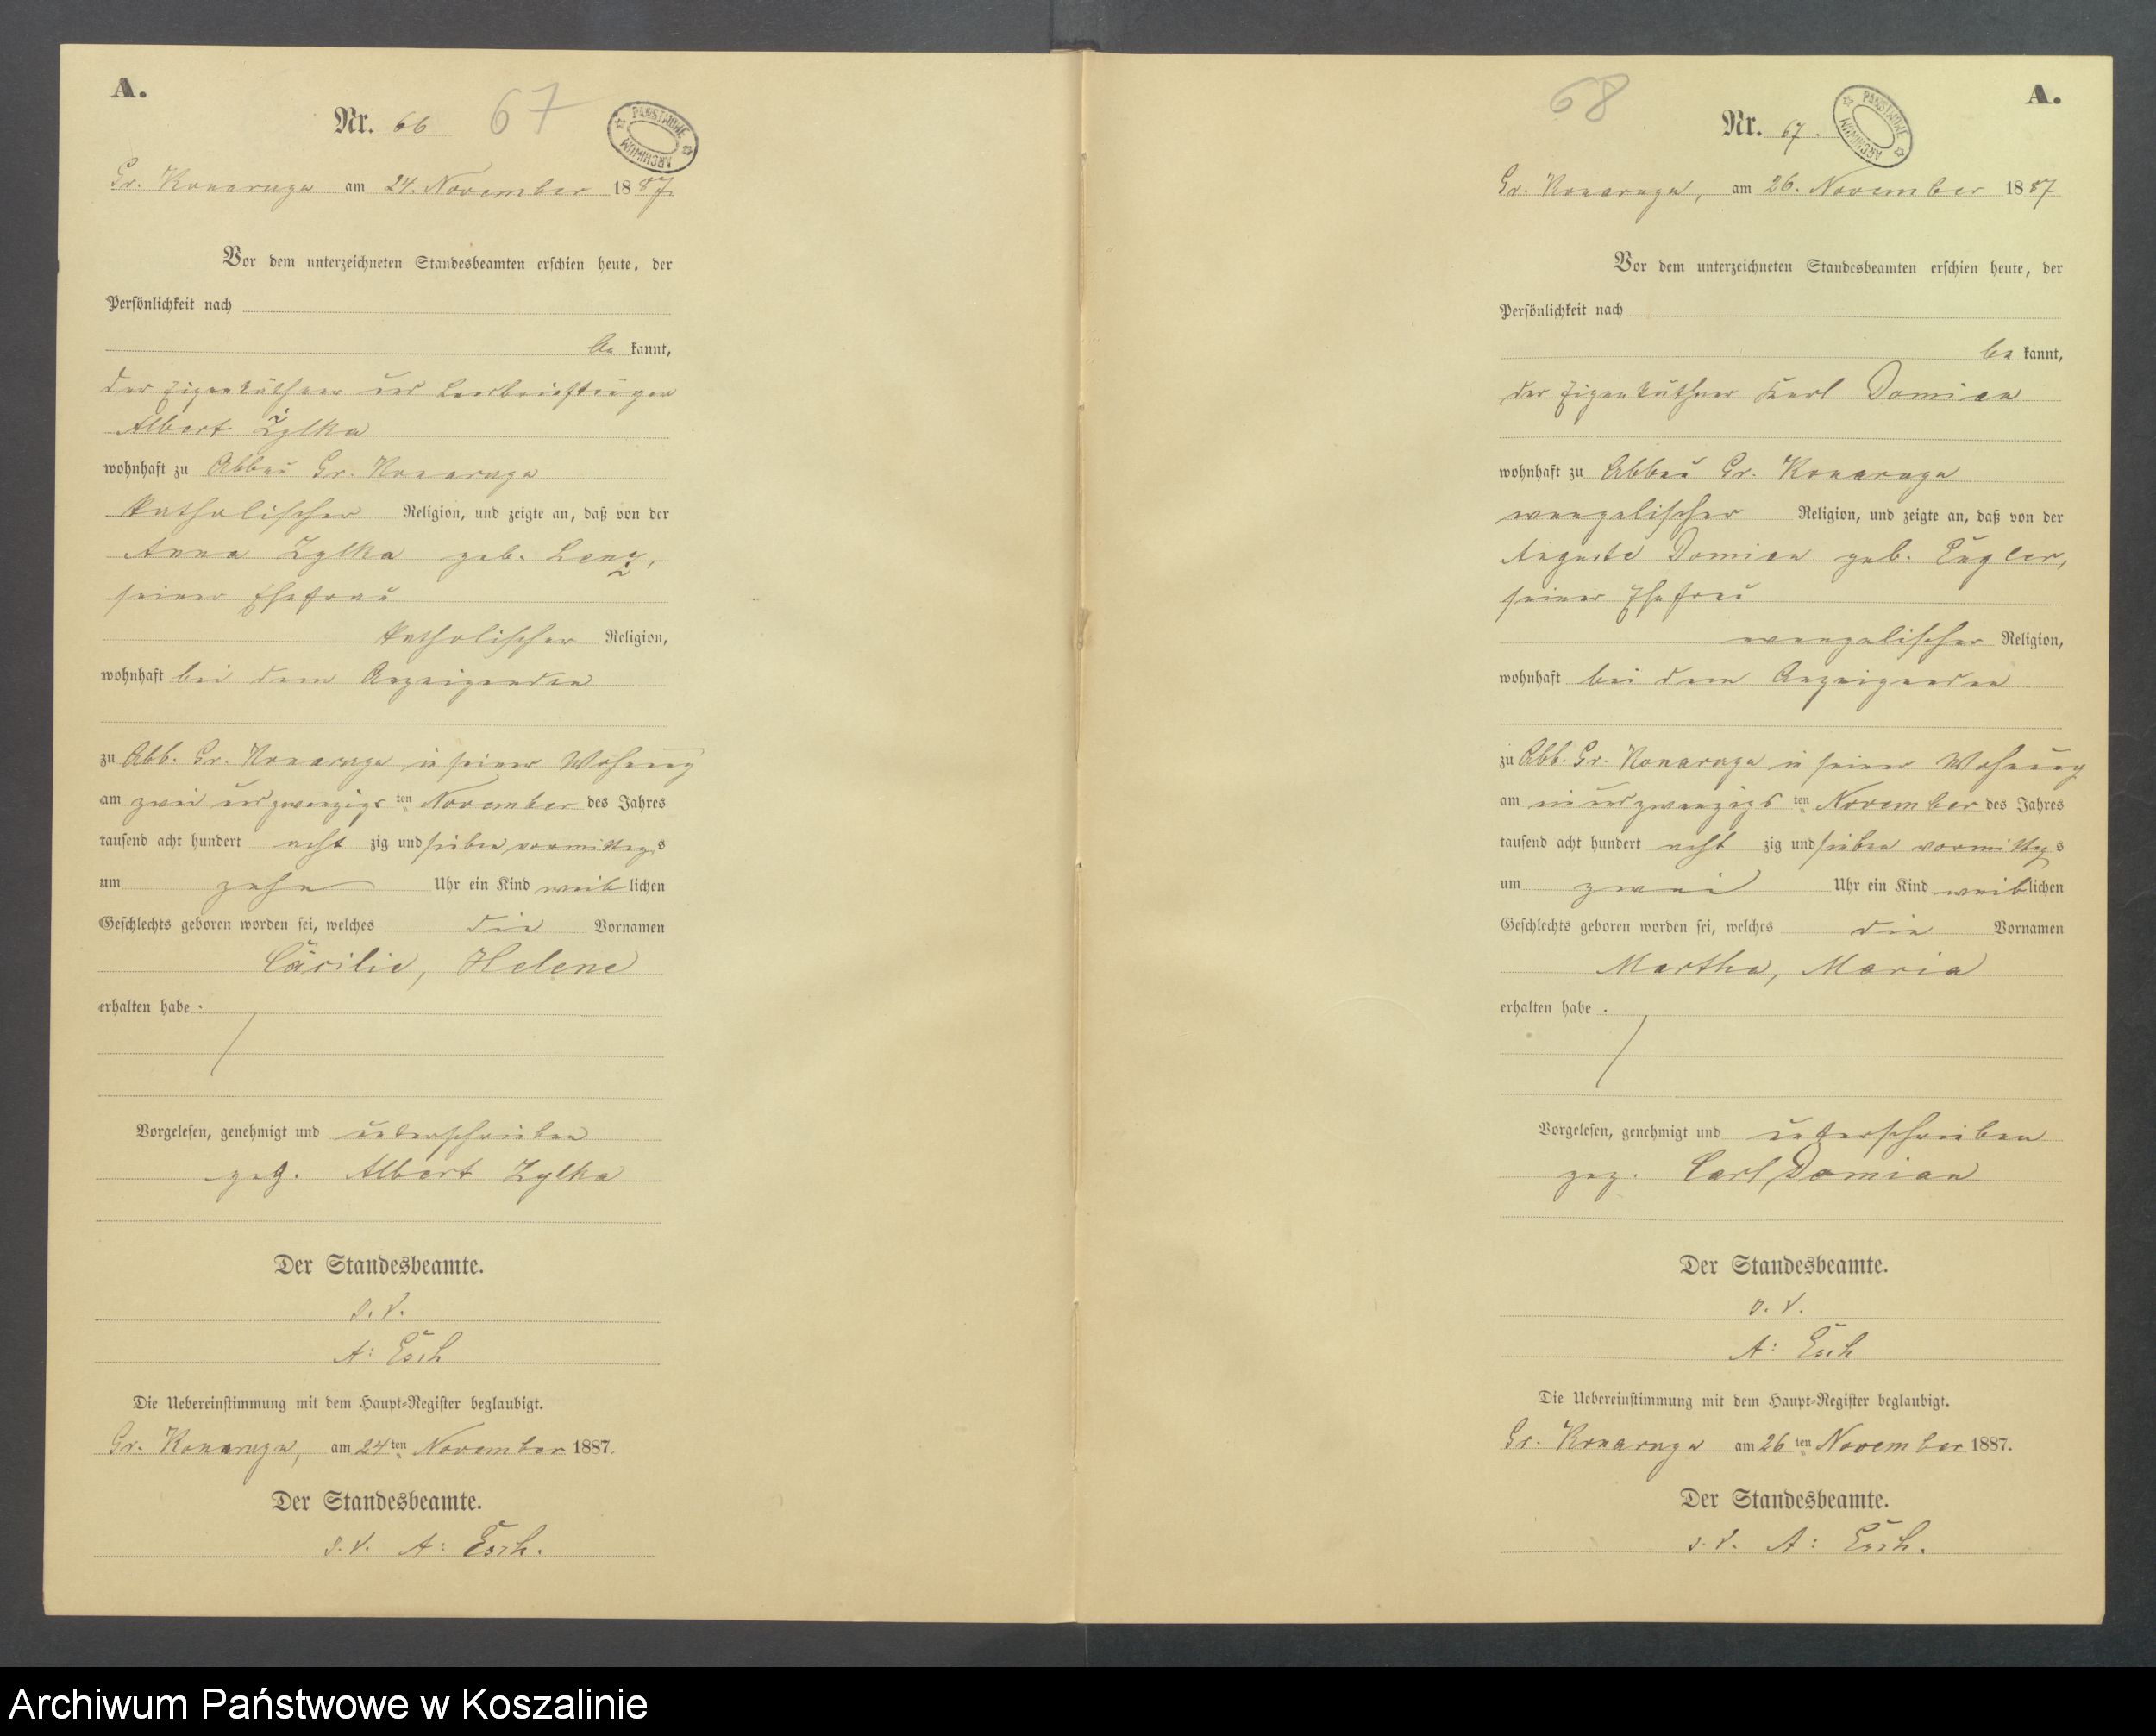 A.
Nr. 66 67
PAŃSTWOWE ARCHIWUM
Gr. Konarzyn am 24. November 1887.
Vor dem unterzeichneten Standesbeamten erschien heute, der
Persönlichkeit nach
be kannt,
der Eigenkäthner und Landbriefträger
Albert Zylka
wohnhaft zu Abbau Gr. Konarzyn
katholischer Religion, und zeigte an, daß von der
Anna Zylka geb. Lenz,
seiner Ehefrau
katholischer Religion,
wohnhaft bei dem Anzeigenden
zu Abb. Gr. Konarzyn in seiner Wohnung
am zwei und zwanzigsten November des Jahres
tausend acht hundert acht zig und sieben vormittags
um zehn Uhr ein Kind weiblichen
Geschlechts geboren worden sei, welches die Vornamen
Cäcilie, Helene
erhalten habe.
Vorgelesen, genehmigt und unterschrieben
gez. Albert Zylka
Der Standesbeamte.
A: Esch
Die Uebereinstimmung mit dem Haupt-Register beglaubigt.
Gr. Konarzyn, am 24ten November 1887.
Der Standesbeamte.
A: Esch.
68 A.
Nr. 67.
PAŃSTWOWE ARCHIWUM
Gr. Konarzyn, am 26. November 1887
Vor dem unterzeichneten Standesbeamten erschien heute, der
Persönlichkeit nach
be kannt,
der Eigenkäthner Karl Domian
wohnhaft zu Abbau Gr. Konarzyn
evangelischer Religion, und zeigte an, daß von der
Auguste Domian geb.
seiner Ehefrau
evangelischer Religion,
wohnhaft bei dem Anzeigenden
zu Abb. Gr. Konarzyn in seiner Wohnung
am ein und zwanzigsten November des Jahres
tausend acht hundert acht zig und sieben vormittags
um zwei Uhr ein Kind weiblichen
Geschlechts geboren worden sei, welches die Vornamen
Martha, Maria
erhalten habe.
Vorgelesen, genehmigt und unterschrieben
gez. Carl Domian
Der Standesbeamte.
A: Esch
Die Uebereinstimmung mit dem Haupt-Register beglaubigt.
Gr. Konarzyn am 26ten November 1887.
Der Standesbeamte.
A: Esch.
Archiwum Państwowe w Koszalinie